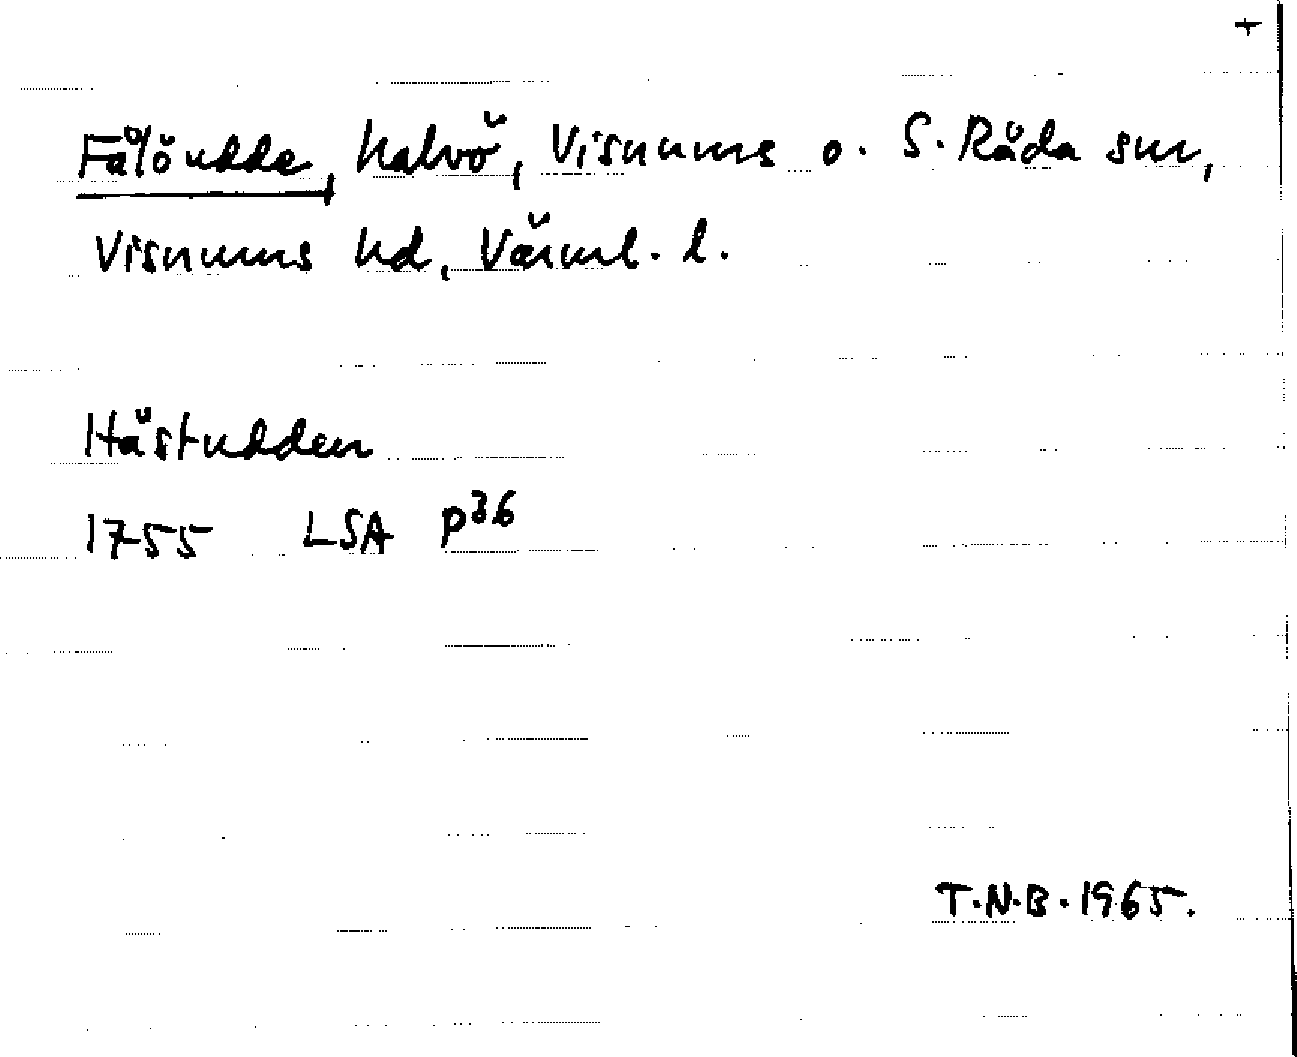 +
Fålöudde, halvö, Visnums o. S. Råda snr,
Visnums hd, Värml. l.
Hästudden
1755 LSA p36
T.N.B. 1965.